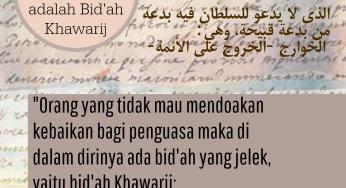 adalah Bid'ah
Khawarij
الذي لا يدعو للسلطان فيه بدعة
من بدعة قبيحة، وهي:
الخوارج -الخروج على الأئمة-
"Orang yang tidak mau mendoakan
kebaikan bagi penguasa maka di
dalam dirinya ada bid'ah yang jelek,
yaitu bid'ah Khawarij: